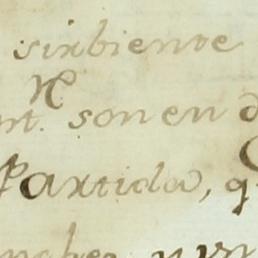 sirbiente
nt. son en d
Partida, q